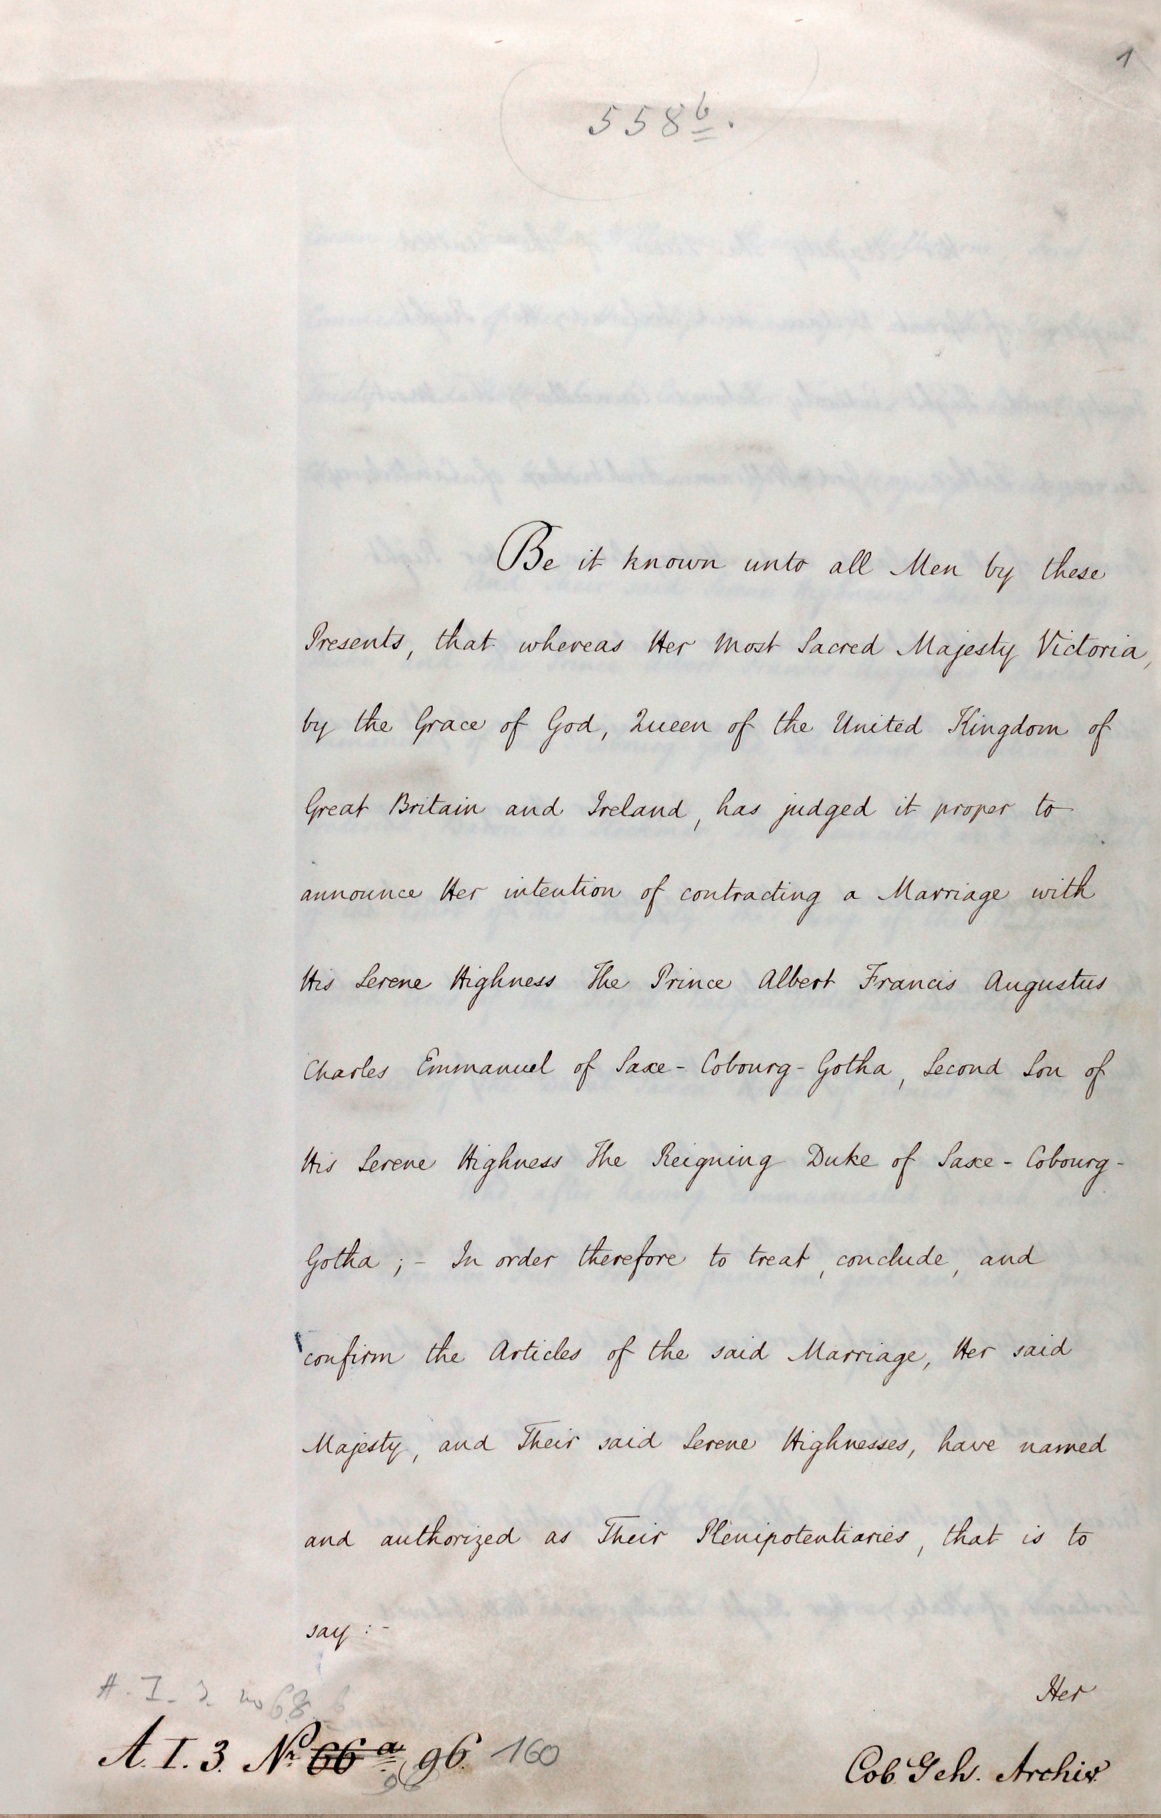 1
558b.
Be it known unto all Men by these
Presents, that whereas Her Most Sacred Majesty Victoria,
by the Grace of God, Queen of the United Kingdom of
Great Britain and Ireland, has judged it proper to
announce Her intention of contracting a Marriage with
His Serene Highness The Prince Albert Francis Augustus
Charles Emmanuel of Saxe-Cobourg-Gotha, Second Son of
His Serene Highness The Reigning Duke of Saxe-Cobourg-
Gotha; - In order therefore to treat, conclude, and
confirm the Articles of the said Marriage, Her said
Majesty, and Their said Serene Highnesses, have named
and authorized as Their Plenipotentiaries, that is to
say: -
Her
A. I. 3. no 68
A. I. 3. No 66 a 96. 160
96
Cob. Geh. Archiv.